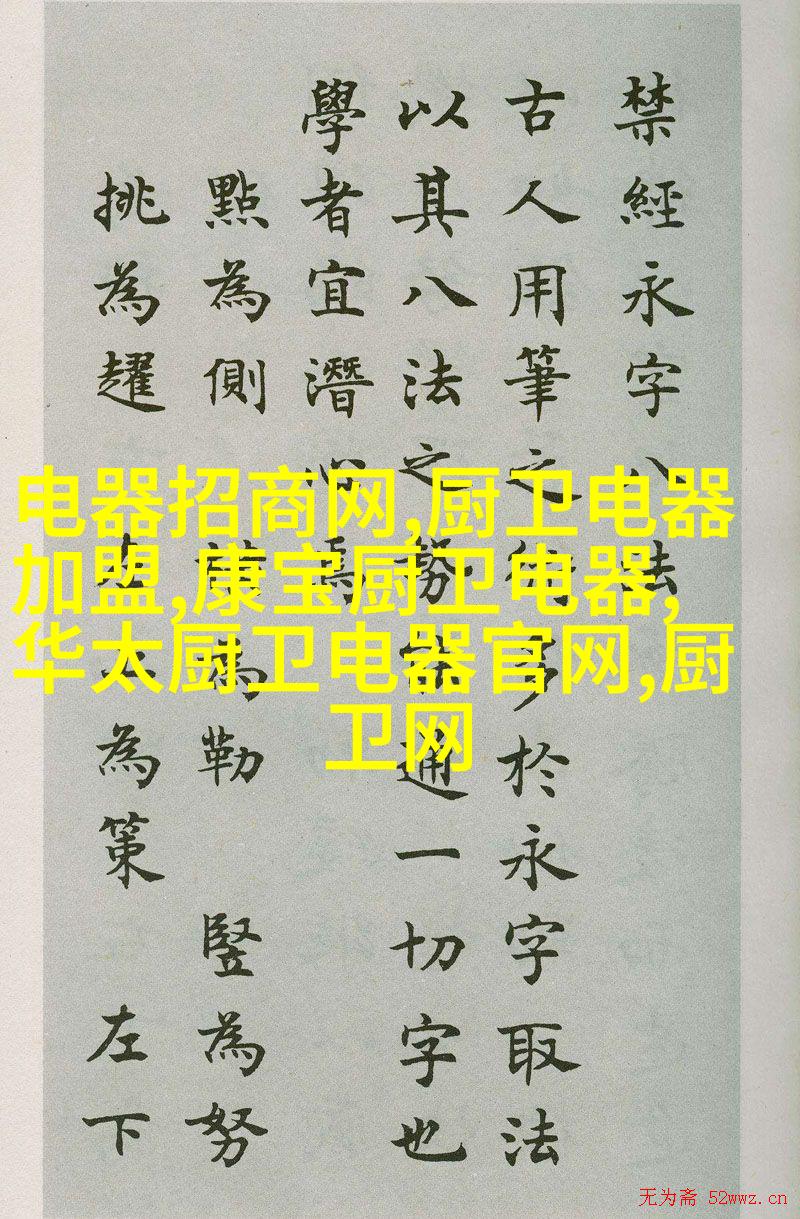 禁經永字八法
古人用筆之術多於永字取法
以其八法之勢能通一切字也
學者宜潛心焉
點為側 橫為勒 竪為努
挑為趯 左上為策 左下
电器招商网,厨卫电器
加盟,康宝厨卫电器,
华太厨卫电器官网,厨
卫网
无为斋 52wwz.cn